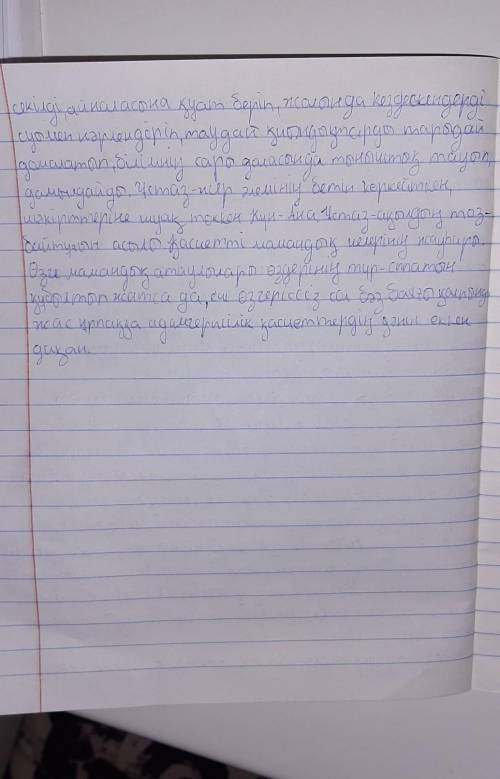 секілді, айналасына қуат беріп, жолында кездескендерді
суымен нәрлендіріп, таудай қиындықтарды тарыдай
домалатып, білімнің сары даласында тыныштық тауып,
дамылдайды. Ұстаз-жер әлемінің бетін көркейткен,
шәкірттеріне шуақ төккен Күн-Ана. Ұстаз-ақылдың таз-
байтұғын асылы қасиетті мамандық иемрінің жаупары.
Өзге мамандық атаулылары өздерінің түр-сипатын
құбылтып жатса да, еш өзгеріссіз сал баз баяғы қалпында
жас ұрпаққа адамгершілік қасиеттердің дәнін еккен
диқан.